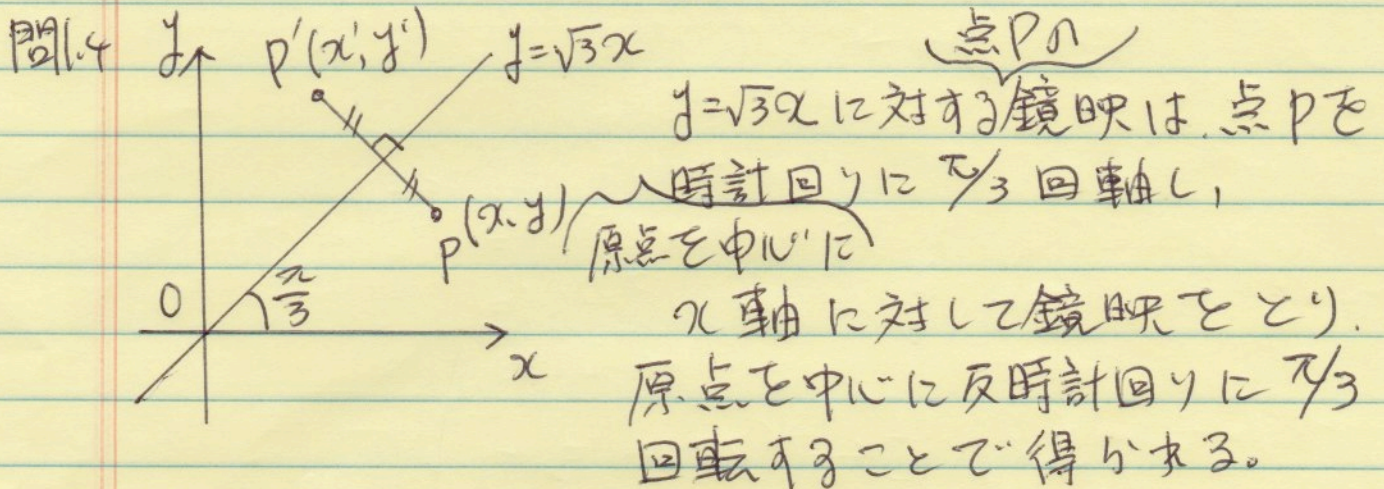 問1.4
y
P'(x', y')
y=√3x
点Pの
y=√3xに対する鏡映は、点Pを
時計回りにπ/3回転し,
P(x,y)
原点を中心に
0
π/3
x軸に対して鏡映をとり、
x
原点を中心に反時計回りにπ/3
回転することで得られる。